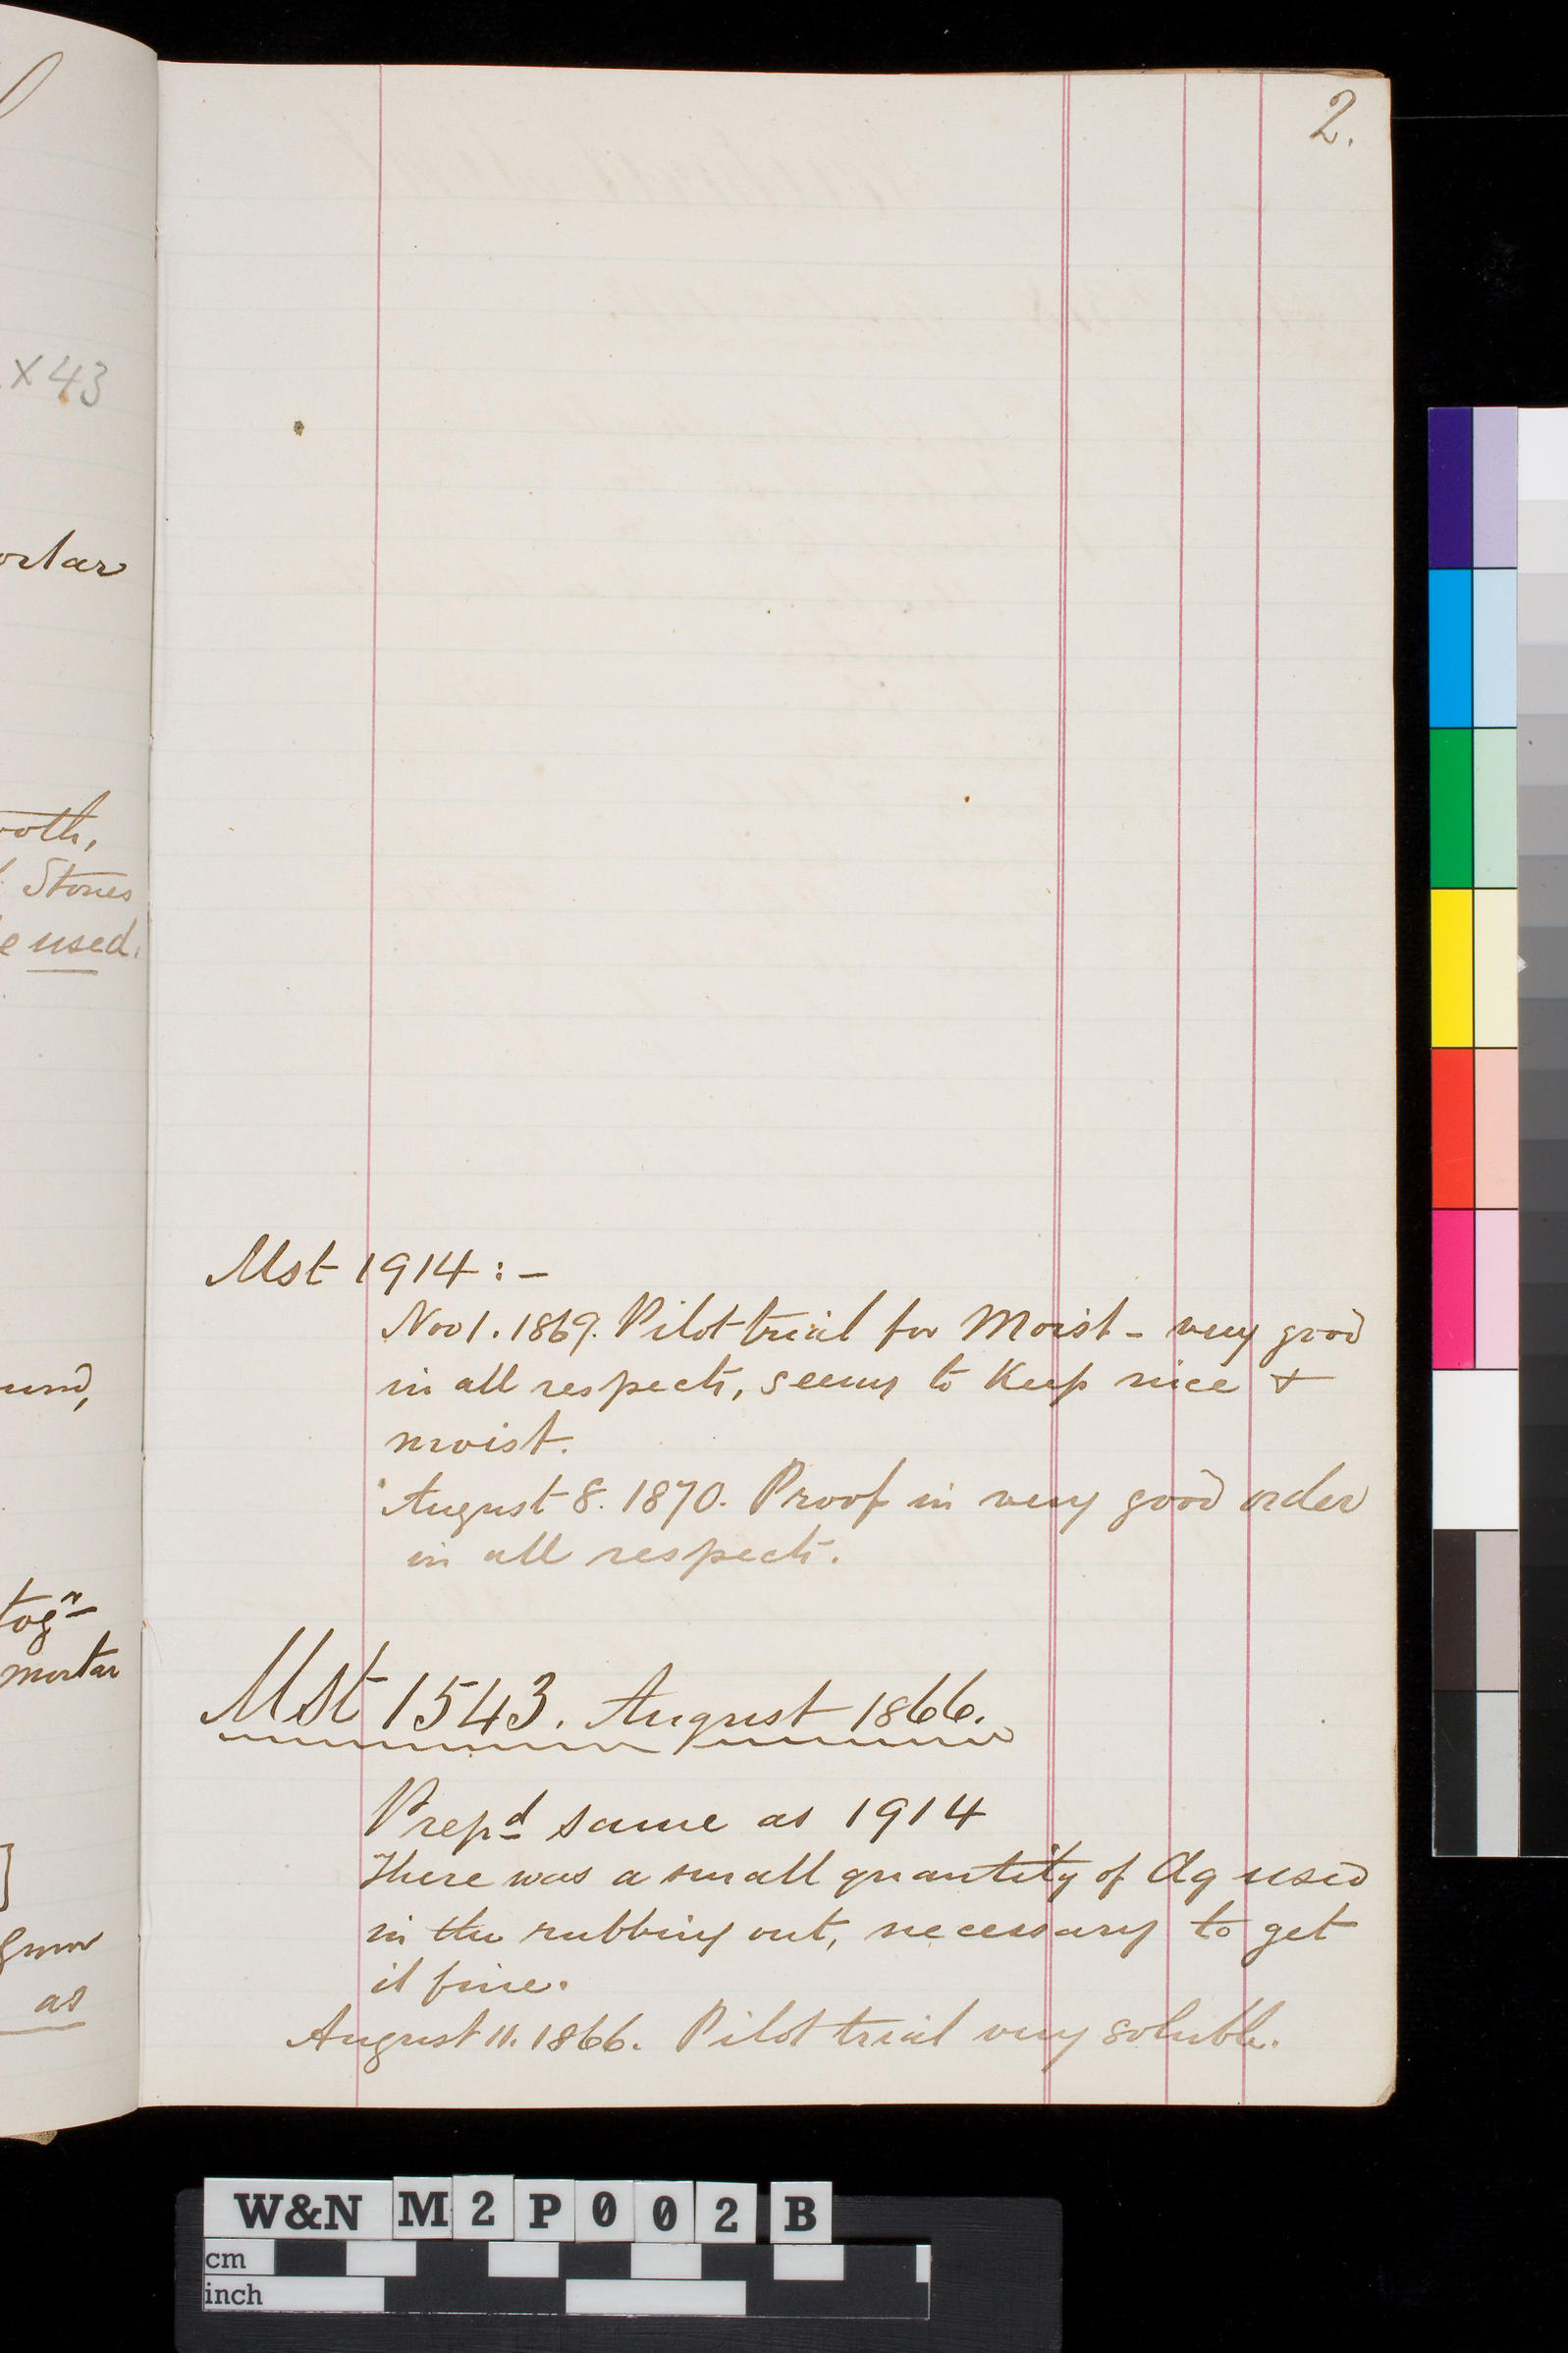 2.
x 43
ortar
ooth,
Stones
e used.
mortar
as
Mst 1914 :-
Nov 1. 1869. Pilot trial for Moist - very good
in all respects, seems to Keep nice &
moist.
August 8. 1870. Proof in very good order
in all respects.
Mst 1543. August 1866.
Prepd same as 1914
There was a small quantity of Aq used
in the rubbing out, necessary to get
it fine.
August 11. 1866. Pilot trial very soluble.
W&N M2P002B
cm
inch